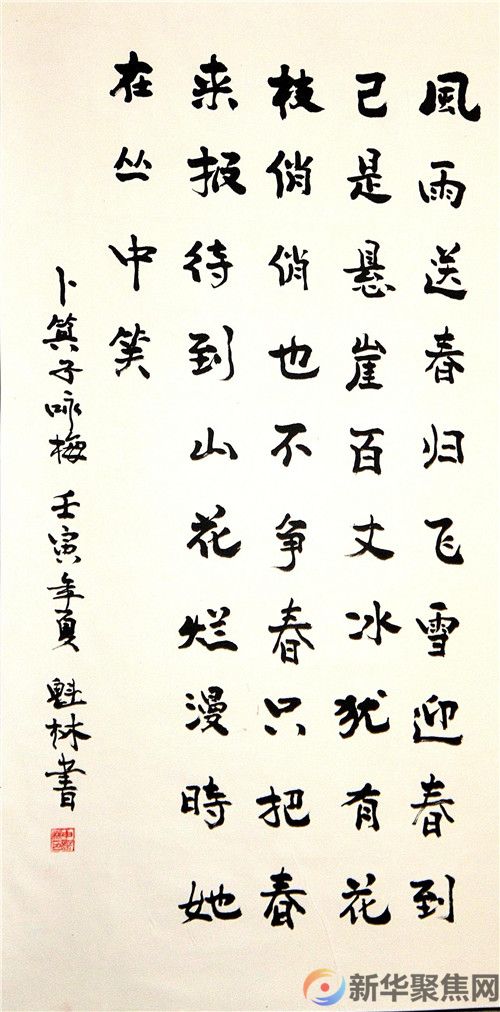 風雨送春归飞雪迎春到
已是悬崖百丈冰犹有花
枝俏俏也不争春只把春
来报待到山花烂漫時她
在丛中笑
卜算子咏梅 壬寅年夏 魁林書
新华聚焦网